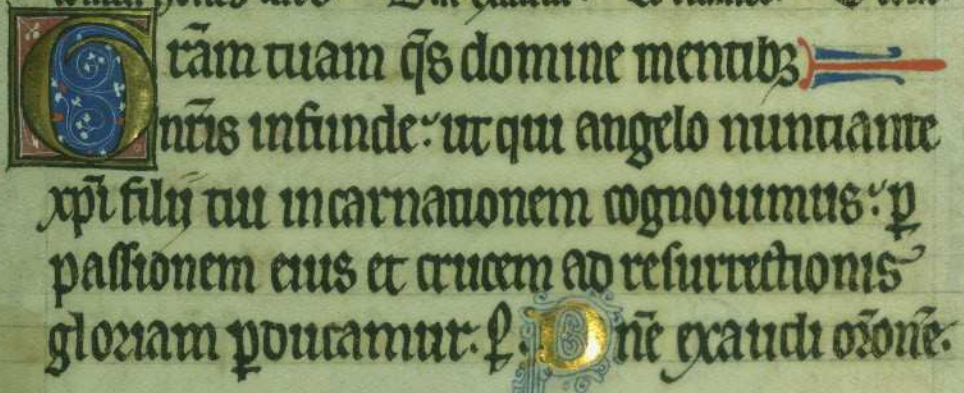 Gr̄am tuam q̄s domine mentibꝫ
nr̄is infunde: ut qui angelo nuntiante
xp̄i filij tui incarnationem cognouimus: ꝑ
passionem eius et crucem ad resurrectionis
gloriam ꝑducamur. ꝑ. Dn̄e exaudi or̄onē.